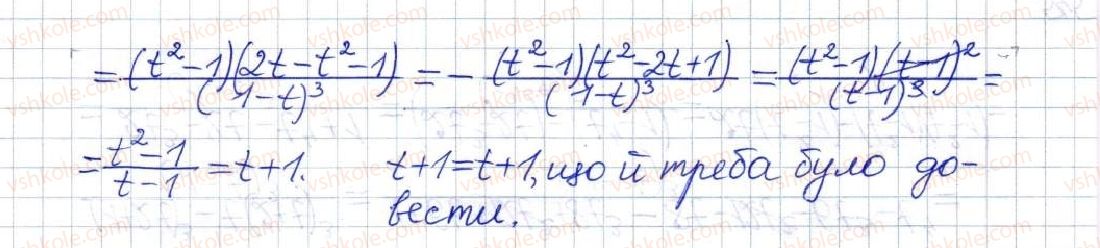 = (t² - 1)(2t - t² - 1) / (1 - t)³ = - (t² - 1)(t² - 2t + 1) / (1 - t)³ = (t² - 1)(t - 1)² / (t - 1)³ =
= t² - 1 / t - 1 = t + 1. t + 1 = t + 1, що й треба було до-
вести.